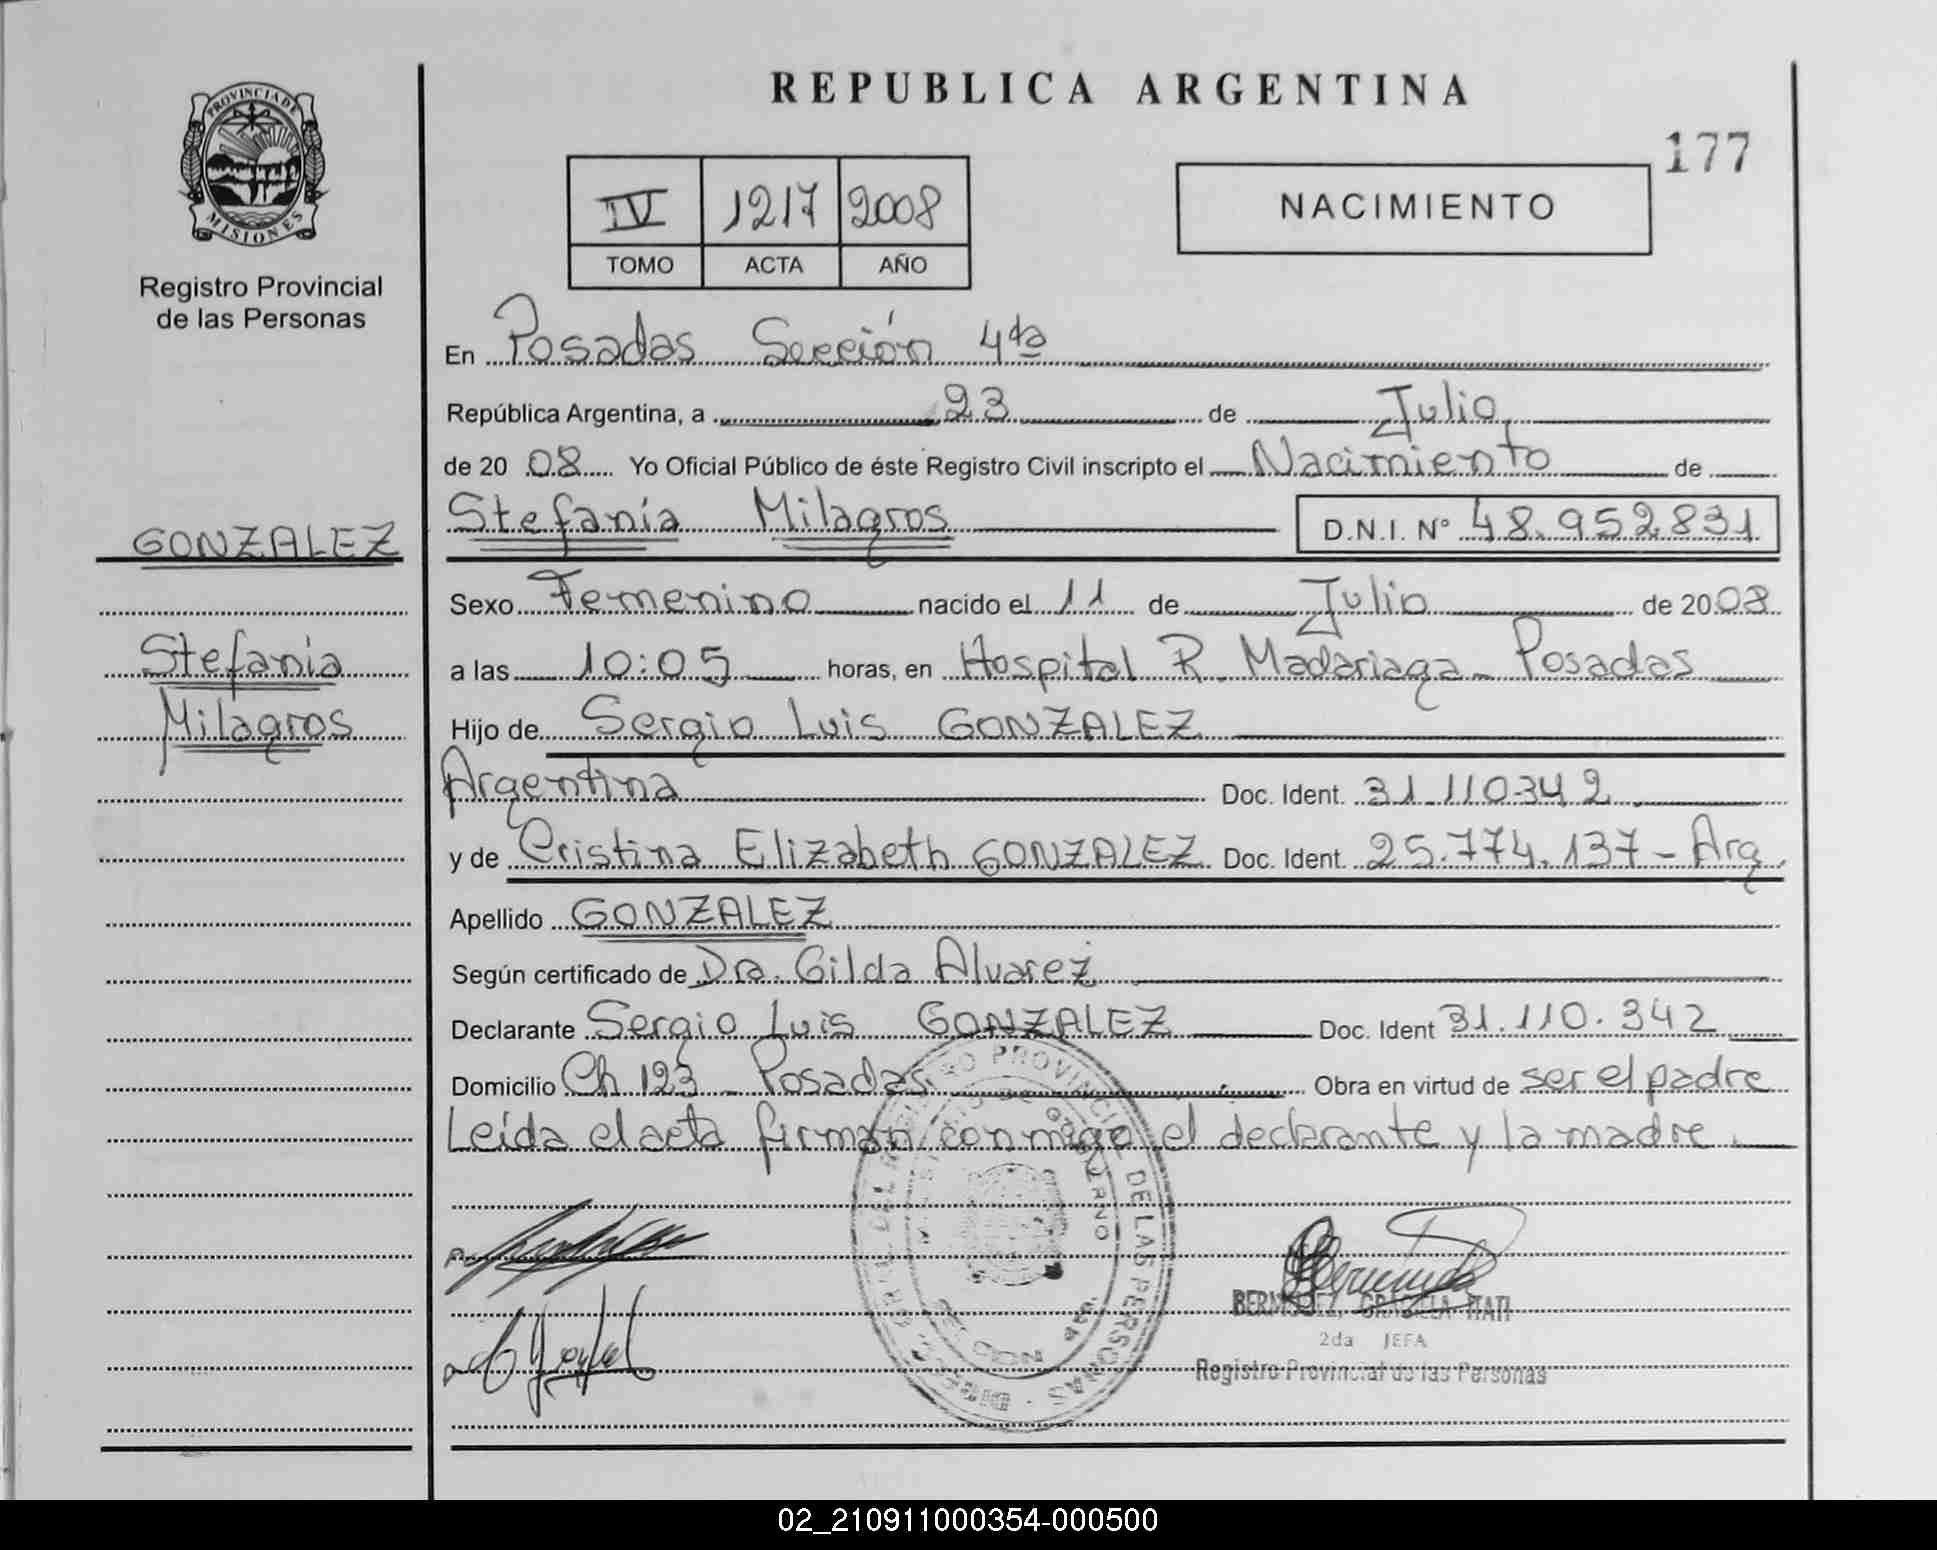 REPUBLICA ARGENTINA
177
PROVINCIA DE
MISIONES
Registro Provincial
de las Personas
IV 1217 2008
TOMO ACTA AÑO
NACIMIENTO
En Posadas Sección 4ta
República Argentina, a 23 de Julio
de 20 08 Yo Oficial Público de éste Registro Civil inscripto el Nacimiento de
Stefanía Milagros D.N.I. N° 48.952831
GONZALEZ
Stefania
Milagros
Sexo Femenino nacido el 11 de Julio de 20 08
a las 10:05 horas, en Hospital R. Madariaga - Posadas
Hijo de Sergio Luis GONZALEZ
Argentina Doc. Ident. 31.110342
y de Cristina Elizabeth GONZALEZ Doc. Ident. 25.774.137 - Arg.
Apellido GONZALEZ
Según certificado de Dra. Gilda Alvarez
Declarante Sergio Luis GONZALEZ Doc. Ident 31.110.342
Domicilio Ch 123 - Posadas Obra en virtud de ser el padre
Leída el acta firman conmigo el declarante y la madre.
PROVINCIAL DE LAS PERSONAS
GOBIERNO
BERMUDEZ, GRACIELA ITATI
2da JEFA
Registro Provincial de las Personas
02_210911000354-000500